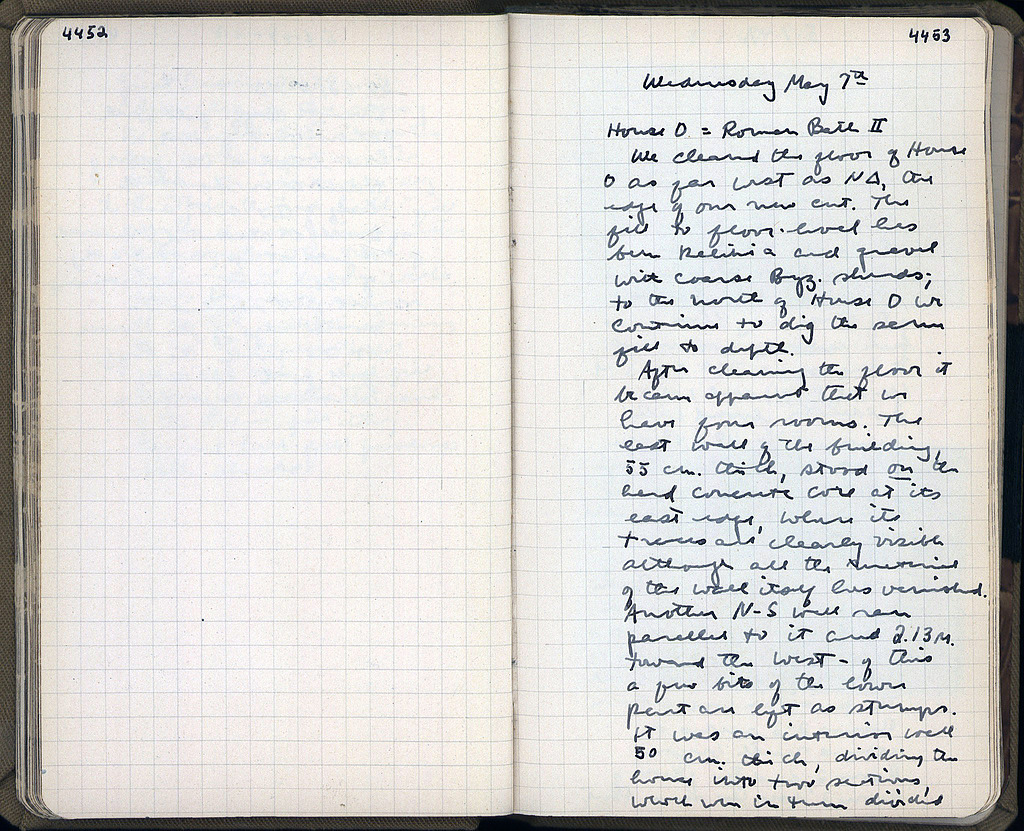 4452
4453
Wednesday May 7th
House O = Roman Bath II
We cleared the floor of House
O as far west as ΝΔ, the
edge of our new cut. The
fill to floor-level has
been kalikia and gravel
with coarse Byz. sherds;
to the north of House O we
continue to dig the same
fill to depth.
After cleaning the floor it
became apparent that we
have four rooms. The
east wall of the building,
55 cm. thick, stood on the
hard concrete core at its
east edge, where its
traces are clearly visible
although all the material
of the wall itself has vanished.
Another N-S wall ran
parallel to it and 2.13 m.
toward the west - of this
a few bits of the lower
part are left as stumps.
It was an interior wall
50 cm. thick, dividing the
house into two sections,
which were in turn divided